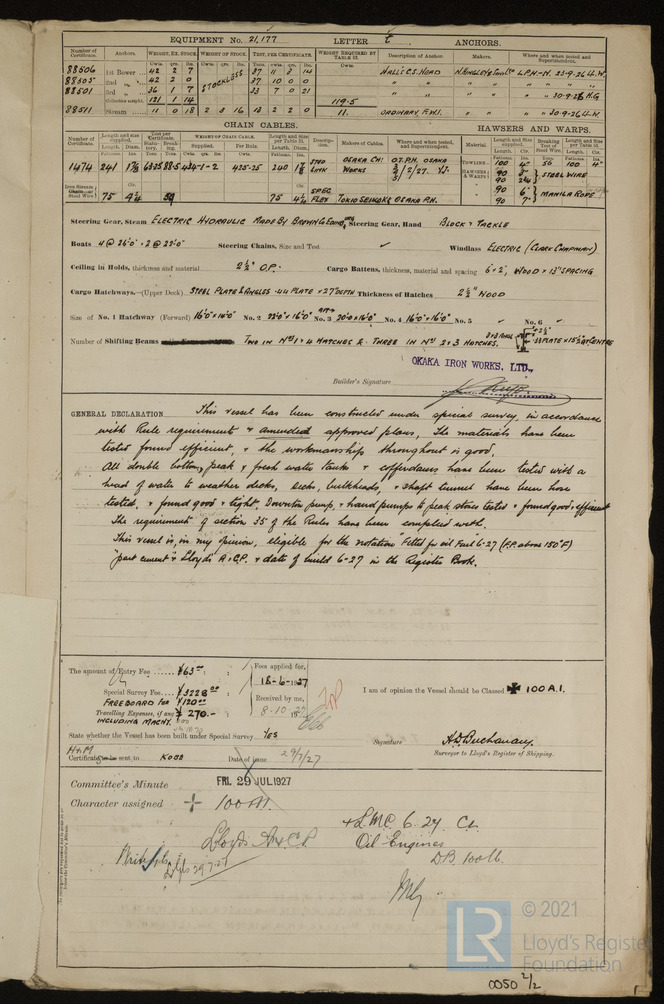 EQUIPMENT No. 21,177 LETTER t ANCHORS.
Number of Certificate. Anchors. WEIGHT, EX. STOCK. WEIGHT OF STOCK. TEST, PER CERTIFICATE. WEIGHT REQUIRED BY TABLE 31. Description of Anchor. Makers. Where and when tested and Superintendent.
Cwts qrs. lbs.
88506 1st Bower 42 2 7 STOCKLESS 37 11 3 14 HALL'S C.S. HEAD L.P.H-H 23-9-26
88505 2nd " 42 2 0 37 10 0 0 " "
88501 3rd " 36 1 7 33 7 0 21 " " 30-9-26 H.G
Collective weight 121 1 14 119.5
88511 Stream 11 0 18 2 3 16 13 2 2 0 11. ORDINARY F.W.I. " 30-9-26
CHAIN CABLES. HAWSERS AND WARPS.
Number of Certificate. Length and size supplied. Test per Certificate. WEIGHT OF CHAIN CABLE. Length and size per Table 31. Description. Makers. Where and when tested, and Superintendent. Material. Length and size supplied. Breaking Test of Steel Wire. Length and size per Table 31.
Length. Diam. Statutory. Breaking. Supplied. Per Rule. Length. Diam. Length. Cir.
1474 241 434-1-2 425-25 240 STUD LINK OSAKA CHN WORKS OSAKA 3/2/27. TOWLINE 100 4" 56 100 4"
HAWSERS & WARPS 90 90 STEEL WIRE
Iron Stream Chain or Steel Wire 75 4 1/4 75 4 1/4 SPEC. FLEX TOKIO SEIKOKU OSAKA P.H. 90 6" 90 7" MANILA ROPE
Steering Gear, Steam ELECTRIC HYDRAULIC MADE BY BROWN Steering Gear, Hand BLOCK & TACKLE
Boats 4 @ 26'0" . 2 @ 22'0" Steering Chains, Size and Test ✓ Windlass ELECTRIC (CLARK CHAPMAN)
Ceiling in Holds, thickness and material 2½" O.P. Cargo Battens, thickness, material and spacing 6 × 2, WOOD × 13" SPACING
Cargo Hatchways.—(Upper Deck) STEEL PLATE & ANGLES .44 PLATE × 27" DEPTH Thickness of Hatches 2½" WOOD
Size of No. 1 Hatchway (Forward) 16'0" × 16'0" No. 2 22'0" × 16'0" No. 3 20'0" × 16'0" No. 4 16'0" × 16'0" No. 5 ✓ No. 6 ✓
Number of Shifting Beams TWO IN Nos 1 & 4 HATCHES & THREE IN Nos 2 & 3 HATCHES. AT CENTRE
OKAKA IRON WORKS, LTD.,
Builder's Signature
GENERAL DECLARATION This vessel has been constructed under special survey, in accordance
with Rule requirements & amended approved plans. The materials have been
tested found efficient, & the workmanship throughout is good.
All double bottom, peak & fresh water tanks & cofferdams have been tested with a
head of water to weather decks, decks, bulkheads, & shaft tunnel have been hose
tested, & found good & tight. Downton pump, & hand pumps to peak stores tested & found good & efficient
The requirements of section 35 of the Rules have been complied with.
This vessel is, in my opinion, eligible for the notation "Fitted for oil fuel 6-27 (F.P. above 150°F)
"part cement" & Lloyds A & C.P. & date of build 6-27 in the Register Book.
The amount of Entry Fee ¥63.00 Fees applied for,
18-6-1927
Special Survey Fee ¥3228.00
FREEBOARD FEE ¥120.00 Received by me,
Travelling Expenses, if any ¥270.- 8.10.27
INCLUDING MACHY.
I am of opinion the Vessel should be Classed ✠ 100 A.1.
State whether the Vessel has been built under Special Survey YES
Signature A.D. Buchanan.
Surveyor to Lloyd's Register of Shipping.
H & M
Certificate to be sent to KOBE Date of issue 29/7/27
Committee's Minute FRI. 29 JUL 1927
Character assigned + 100 A1.
+ LMC 6.27 CL.
Lloyds A & C.P. Oil Engines
DB. 100 lb.
29.7.27
LR
© 2021
Lloyd's Register
Foundation
0050 2/2